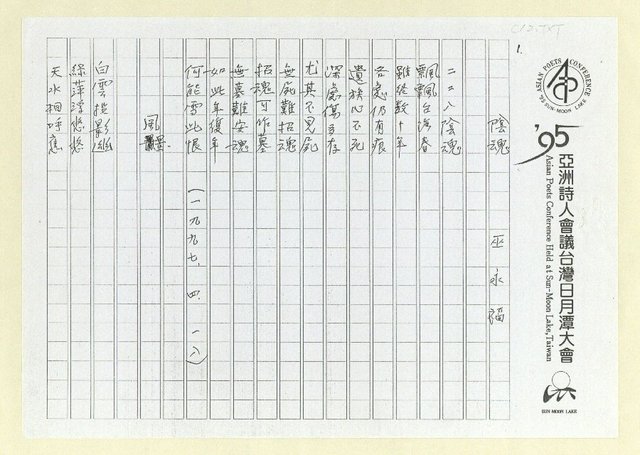 C12.TXT
1.
ASIAN POETS CONFERENCE
'95 SUN-MOON LAKE
'95 亞洲詩人會議台灣日月潭大會
Asian Poets Conference Held at Sun-Moon Lake, Taiwan
SUN-MOON LAKE
陰魂
巫永福
二二八陰魂
飄飄台湾春
雖経数十年
各處仍有痕
遺族心不死
深處傷自存
尤其不見屍
無屍難招魂
招魂可作墓
無墓難安魂
如此年復年
何能雪此恨
(一九九七.四.一八)
風
白雲投影幽
綠萍浮悠悠
天水相呼應